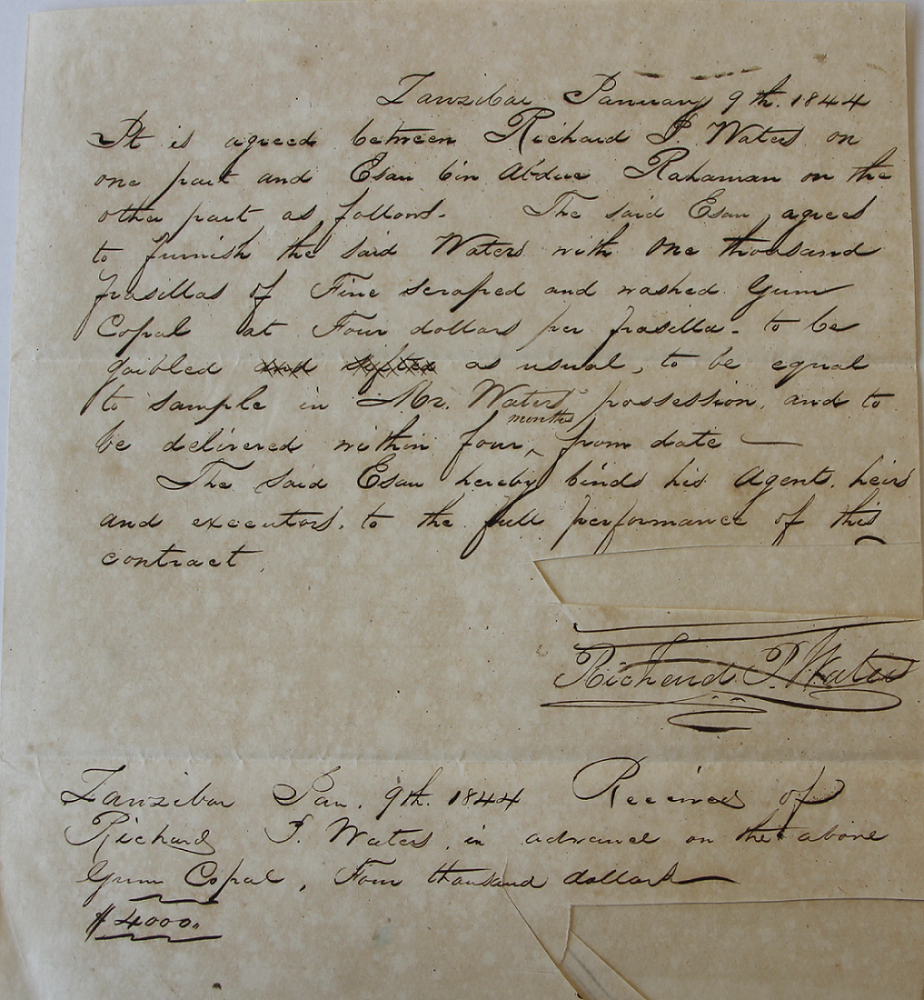 Zanzibar January 9th. 1844
It is agreed between Richard P. Waters on
one part and Esau bin Abdue Rahaman on the
other part as follows. The said Esau agrees
to furnish the said Waters with One thousand
frasillas of Fine scraped and washed Gum
Copal at Four dollars per frasilla - to be
garbled and sifted as usual, to be equal
to sample in Mr. Waters possession, and to
be delivered within four months from date —
The said Esau hereby binds his Agents, heirs
and executors, to the full performance of this
contract.
Richard P. Waters
Zanzibar Jan. 9th. 1844 Received of
Richard P. Waters, in advance on the above
Gum Copal, Four thousand dollars —
$4000.